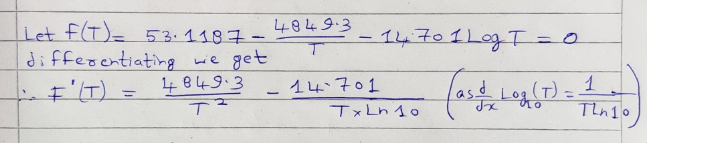 Let F(T) = 53.1187 - 4849.3/T - 14.701 Log T = 0
differentiating we get
∴ F'(T) = 4849.3/T² - 14.701/(T×Ln10) (as d/dx Log₁₀(T) = 1/(T ln10))